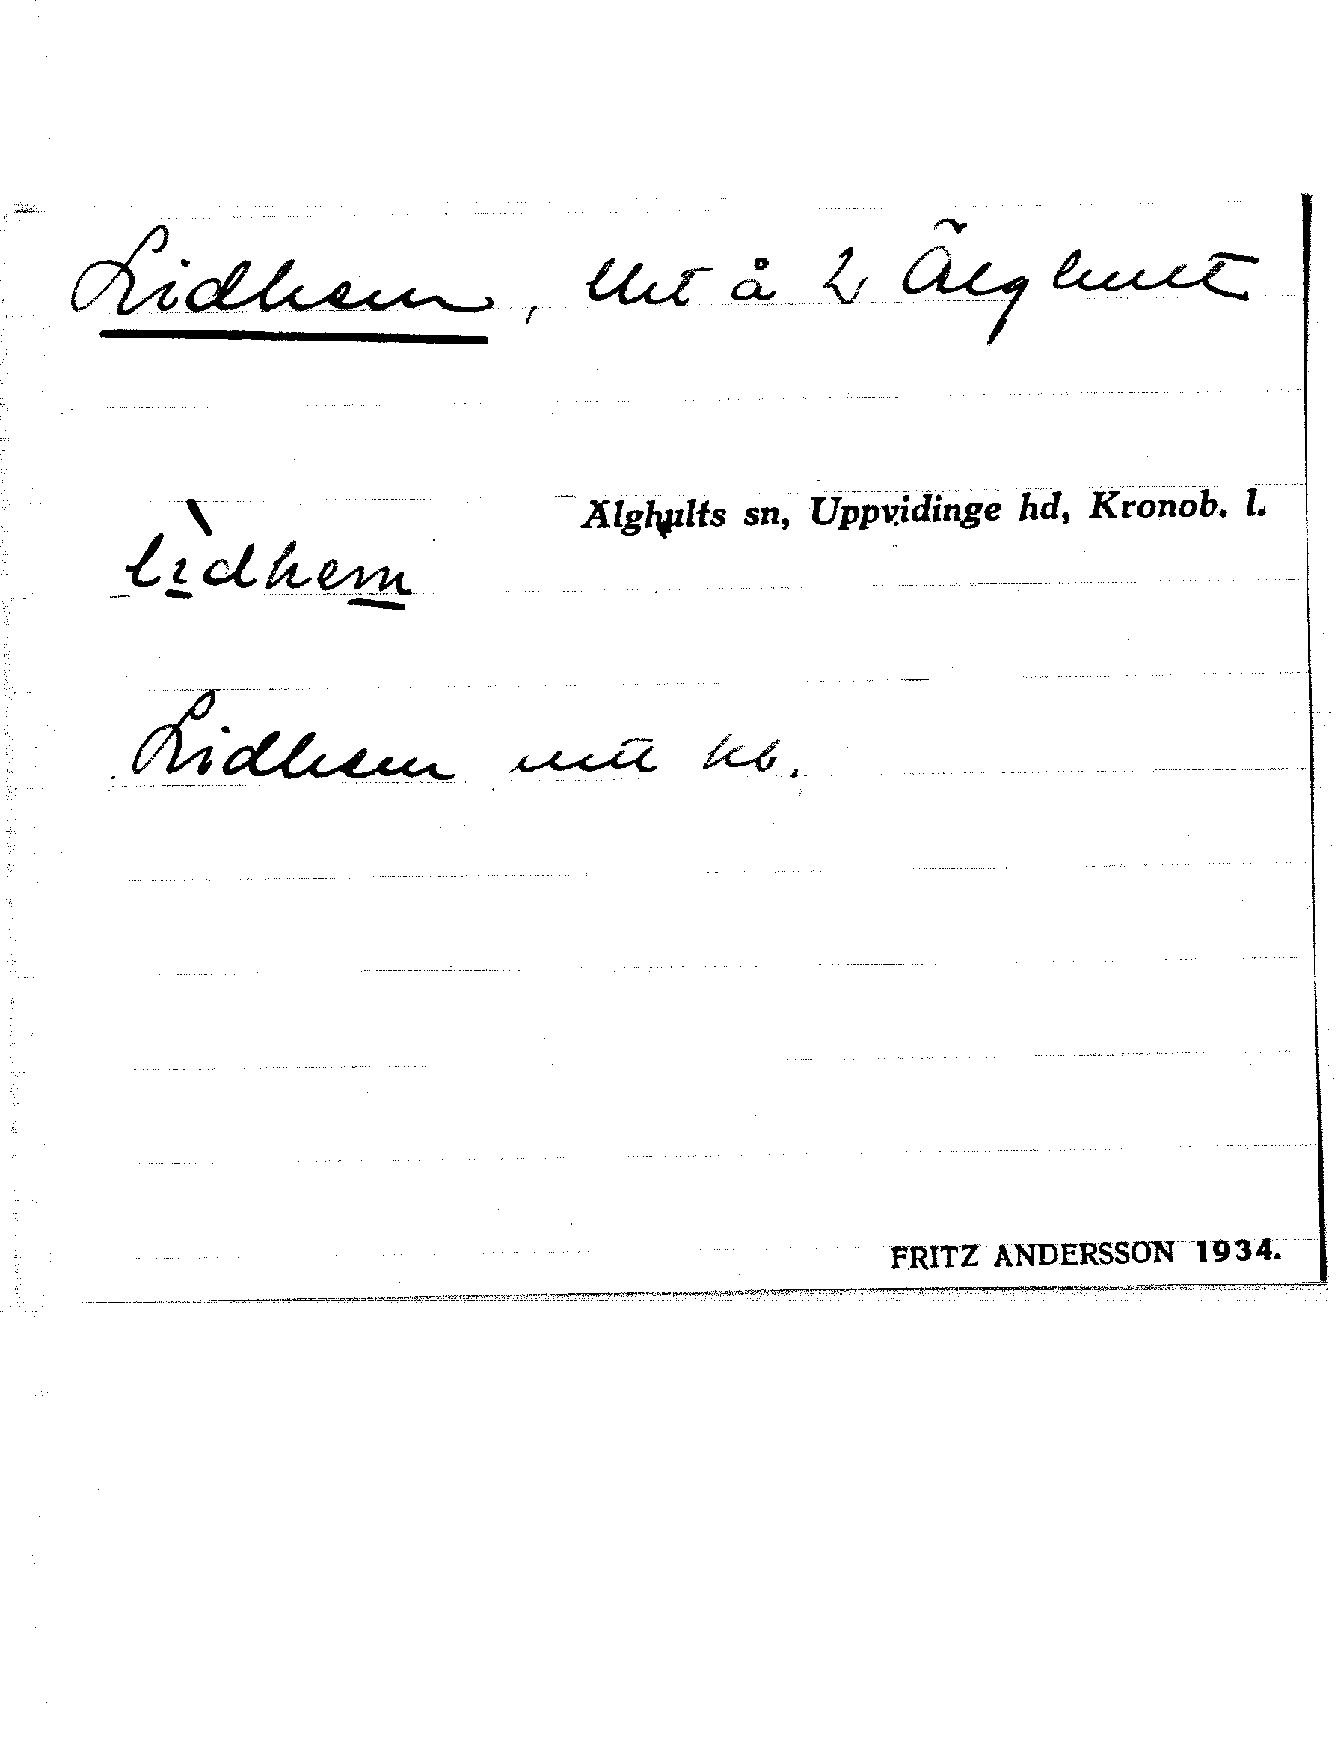 Lidhem, lht å 2 Älghult
Älghults sn, Uppvidinge hd, Kronob. l.
lìdhem
Lidhem kb.
FRITZ ANDERSSON 1934.